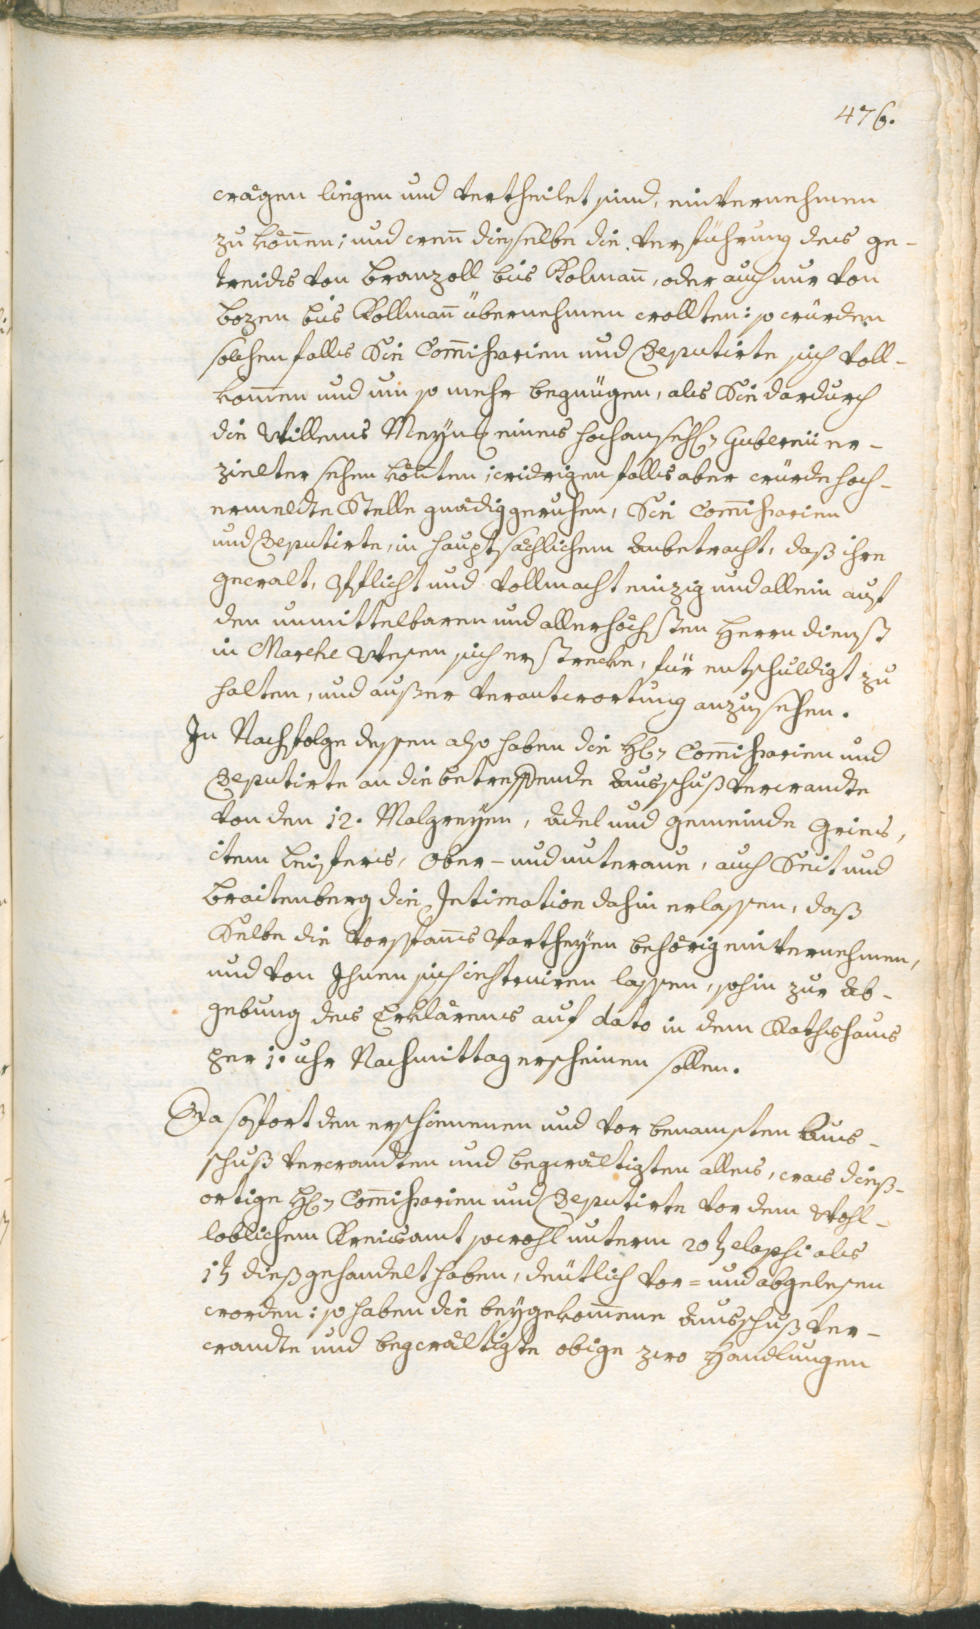 476.
wägen liegen und vertheilet sind, einvernehmen
zu können; und wenn dieselbe die verführung des ge-
treides von Branzoll bis Kolmañ, oder auch nur von
Bozen bis Kollmañ übernehmen wollten: so würden
solchenfalls Sie Com̃issarien und Deputirte sich voll-
kom̃en und um so mehr begnügen, als Sie dardurch
die Willens Meÿnung eines hochansehl: Gubernii er-
zielter sehen köñten; widrigenfalls aber würde hoch-
ermeldte Stelle gnädig geruhen, Sie Com̃issarien
und Deputirte, in hauptsächlichem Anbetracht, daß ihre
gewalt, Pflicht und vollmacht einzig und allein auf
den unmittelbaren und allerhöchsten Herrn dienst
in Marche Wesen sich erstrecke, für entschuldigt zu
halten, und außer verantwortung anzusehen.
In Nachfolge dessen also haben die H: Com̃issarien und
Deputirte an die betreffende Ausschuß verwandte
von den 12. Malgreÿen, Adel und gemeinde Gries,
item Leifers, Ober- und unterau, auch Seit und
Breitenberg die Intimation dahin erlassen, daß
Selbe die Vorspañs Partheÿen behörig einvernehmen,
und von Ihnen sich instruiren lassen, sohin zur Ab-
gebung des Erklärens auf dato in dem Rathshaus
per 1. uhr Nachmittag erscheinen sollen.
Da sofort den erschienenen und vor benamsten Aus-
schuß verwandten und begwältigten alles, was dieß-
ortige H: Com̃issarien und Deputirte vor dem Wohl-
loblichem Kreisamt sowohl unterm 20t elapsi als
1t dieß gehandelt haben, deütlich vor- und abgelesen
worden: so haben die beÿgekom̃ene Ausschuß ver-
wandte und begwältigte obige zwo Handlungen